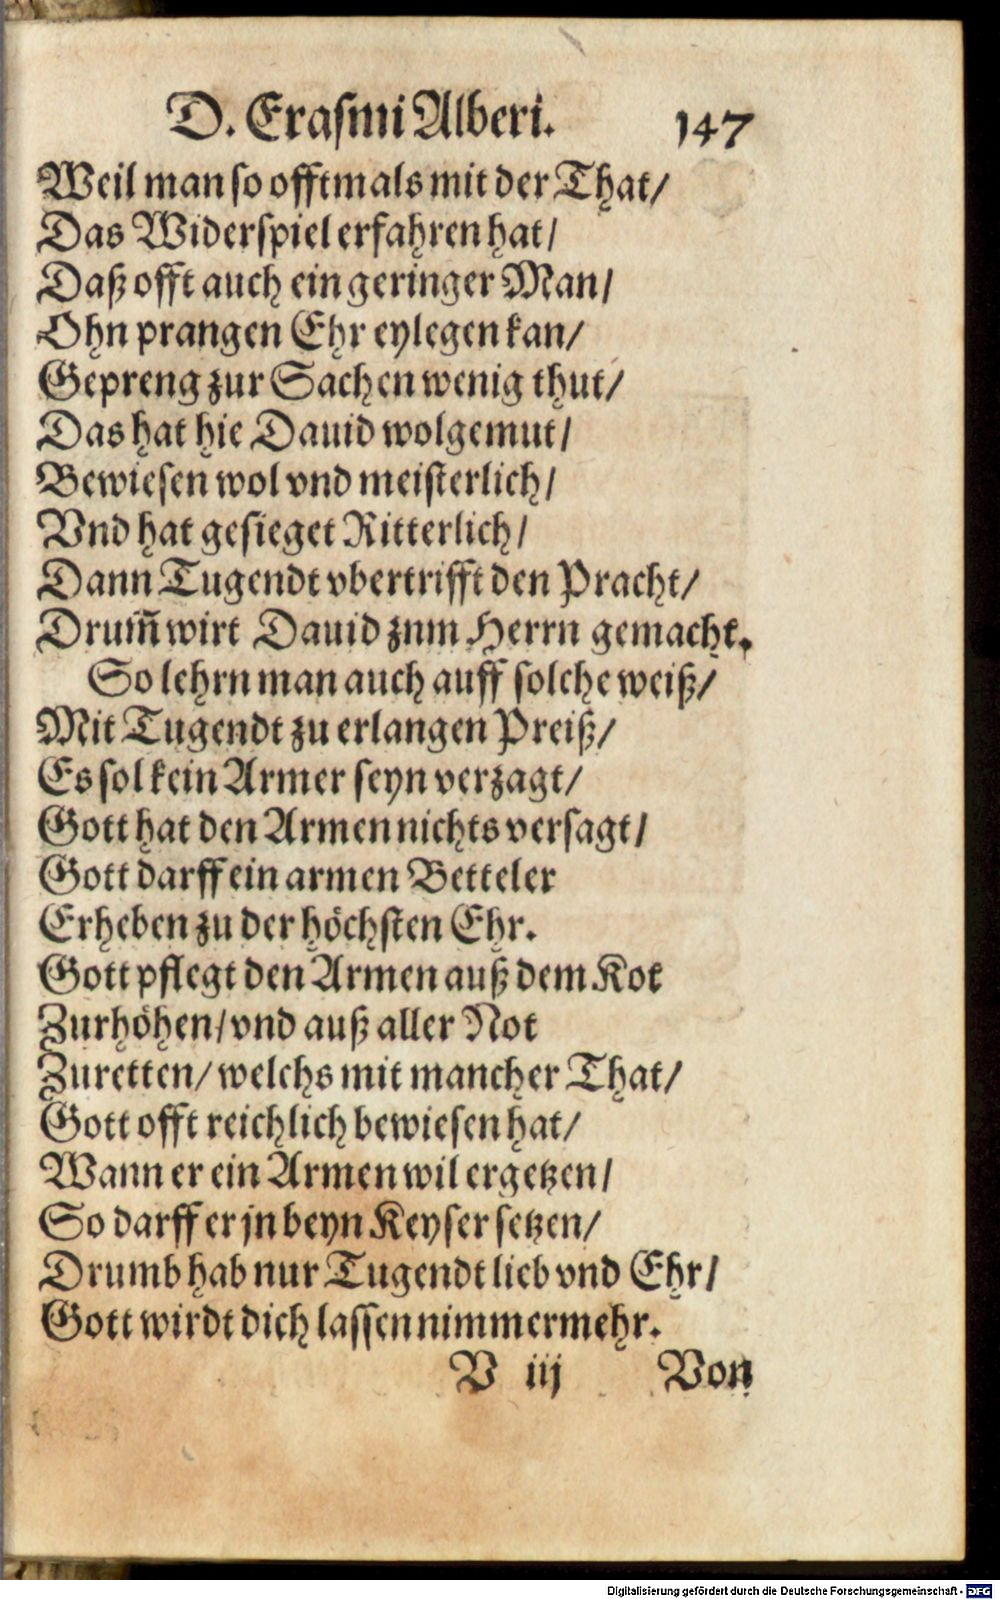 D. Erasmi Alberi. 147
Weil man so offtmals mit der That/
Das Widerspiel erfahren hat/
Daß offt auch ein geringer Man/
Ohn prangen Ehr eylegen kan/
Gepreng zur Sachen wenig thut/
Das hat hie Dauid wolgemut/
Bewiesen wol vnd meisterlich/
Vnd hat gesieget Ritterlich/
Dann Tugendt vbertrifft den Pracht/
Drum̃ wirt Dauid znm Herrn gemacht.
So lehrn man auch auff solche weiß/
Mit Tugendt zu erlangen Preiß/
Es sol kein Armer seyn verzagt/
Gott hat den Armen nichts versagt/
Gott darff ein armen Betteler
Erheben zu der höchsten Ehr.
Gott pflegt den Armen auß dem Kot
Zurhöhen/ vnd auß aller Not
Zuretten/ welchs mit mancher That/
Gott offt reichlich bewiesen hat/
Wann er ein Armen wil ergetzen/
So darff er jn beyn Keyser setzen/
Drumb hab nur Tugendt lieb vnd Ehr/
Gott wirdt dich lassen nimmermehr.
V iij Von
Digitalisierung gefördert durch die Deutsche Forschungsgemeinschaft - DFG